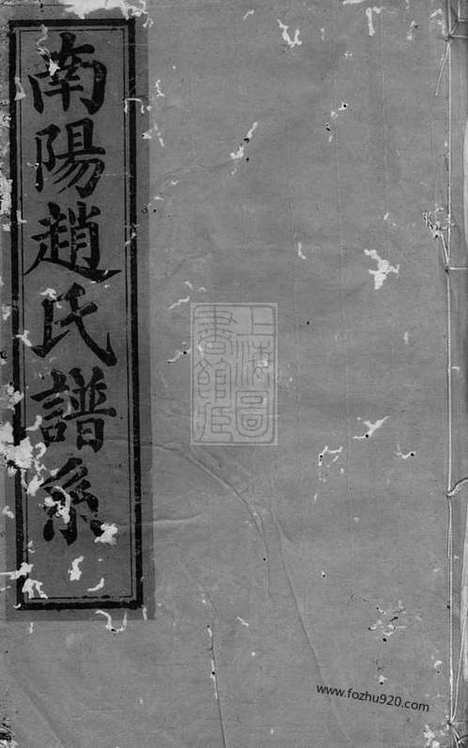 南陽趙氏譜系
上海圖
書館藏
www.fozhu920.com